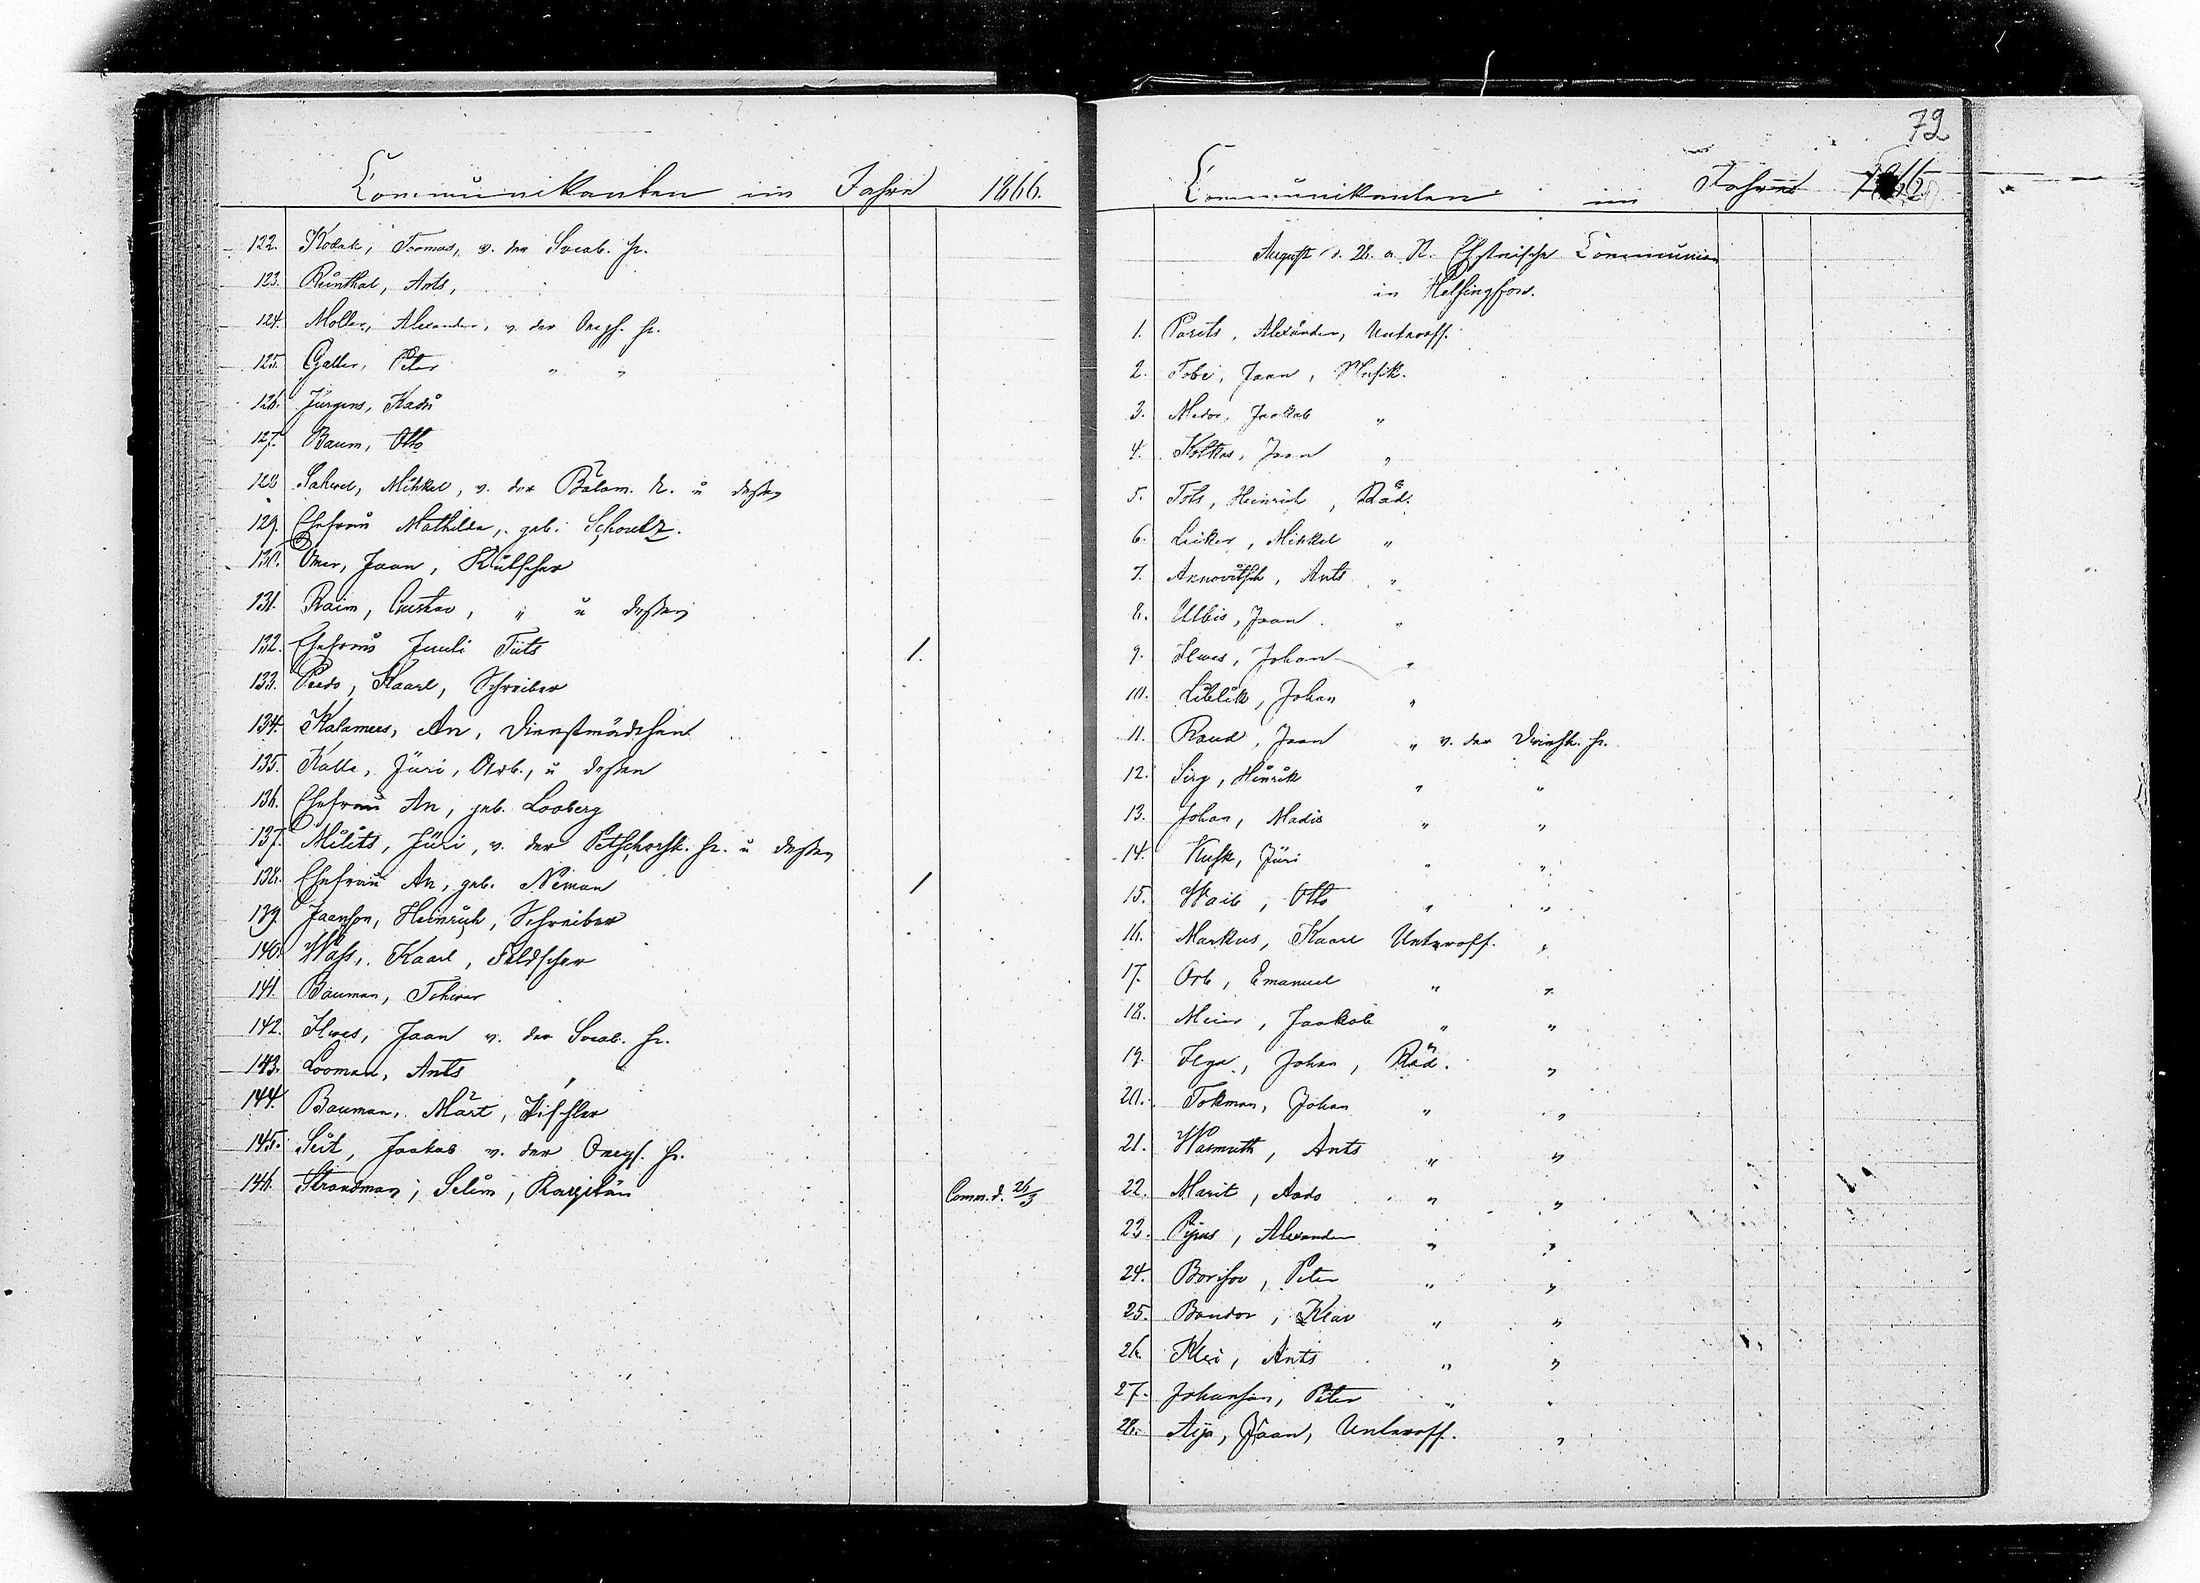 Communikanten im Jahre 1866.
122. Kodak, Toomas, v. der Sveab. fr.
123. Reinthal, Ants,
124. Moller, Alexander, v. der Onegs. fr.
125. Galler, Peter " "
126. Jürgens, Kadri
127. Baum, Otto
128 Sakwel, Mihkel, v. der Bålam. K. u dessen
129. Ehefrau Mathilda, geb. Schoultz.
130. Oner, Jaan, Kutscher
131. Raim, Gustav, " u dessen
132. Ehefrau Juuli Tiits 1.
133. Peedo, Kaarl, Schreiber
134. Kalamees, An, Dienstmädchen
135. Kalla, Jüri, Arb., u dessen
136. Ehefrau An, geb. Looberg
137. Milits, Jüri, v. der Petschorsk. fr. u dessen
138. Ehefrau An, geb. Neman 1
139. Jaanson, Heinrich, Schreiber
140. Wahs, Kaarl, Feldscher
141. Bauman, Tohwer
142. Ilwes, Jaan v. der Sveab. fr.
143. Looman, Ants "
144. Bauman, Märt, Tischler
145. Seit, Jaakob v. der Onegs. fr.
146. Strandman, Selim, Kapitän Comm. d. 26/3
72
Communikanten im Jahre 1866.
August d. 28. a. K. Ehstnische Communion
in Helsingfors.
1. Parits, Alexander, Unteroff.
2. Tobi, Jaan, Musik.
3. Medor, Jaakob "
4. Kolkas, Jaan "
5. Tots, Heinrich, Räd.
6. Leiker, Mihkel "
7. Arnovitsch, Ants "
8. Ulbis, Jaan "
9. Ilwes, Johan "
10. Liblik, Johan "
11. Raud, Jaan " v. der Dwinsk. fr.
12. Sirg, Hinrik " "
13. Johan, Madis " "
14. Kusk, Jüri " "
15. Waib, Otto " "
16. Markus, Kaarl Unteroff. "
17. Orb, Emanuel " "
18. Meier, Jaakob " "
19. Ilga, Johan, Räd. "
20. Tokman, Johan " "
21. Warmuth, Ants " "
22. Marit, Aado " "
23. Pipus, Alexander " "
24. Borisov, Peter " "
25. Bandor, Klav " "
26. Klei, Ants " "
27. Johanson, Peter " "
28. Aija, Jaan, Unteroff. "